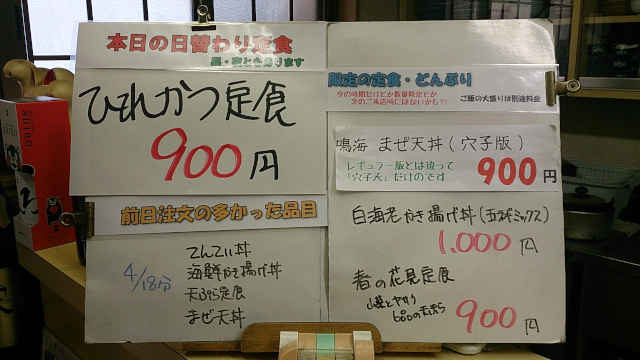 本日の日替わり定食
昼・夜ともあります
ひれかつ定食
900円
前日注文の多かった品目
4/18分
てんてい丼
海鮮かき揚げ丼
天ぷら定食
まぜ天丼
限定の定食・どんぶり
今の時期だけとか数量限定とか
次のご来店時にはないかも?!
ご飯の大盛りは別途料金
鳴海 まぜ天丼(穴子版)
レギュラー版とは違って
「穴子天」だけのです
900円
白海老かき揚げ丼(玉ネギミックス)
1,000円
春の花見定食
山菜とヤサイ
900円